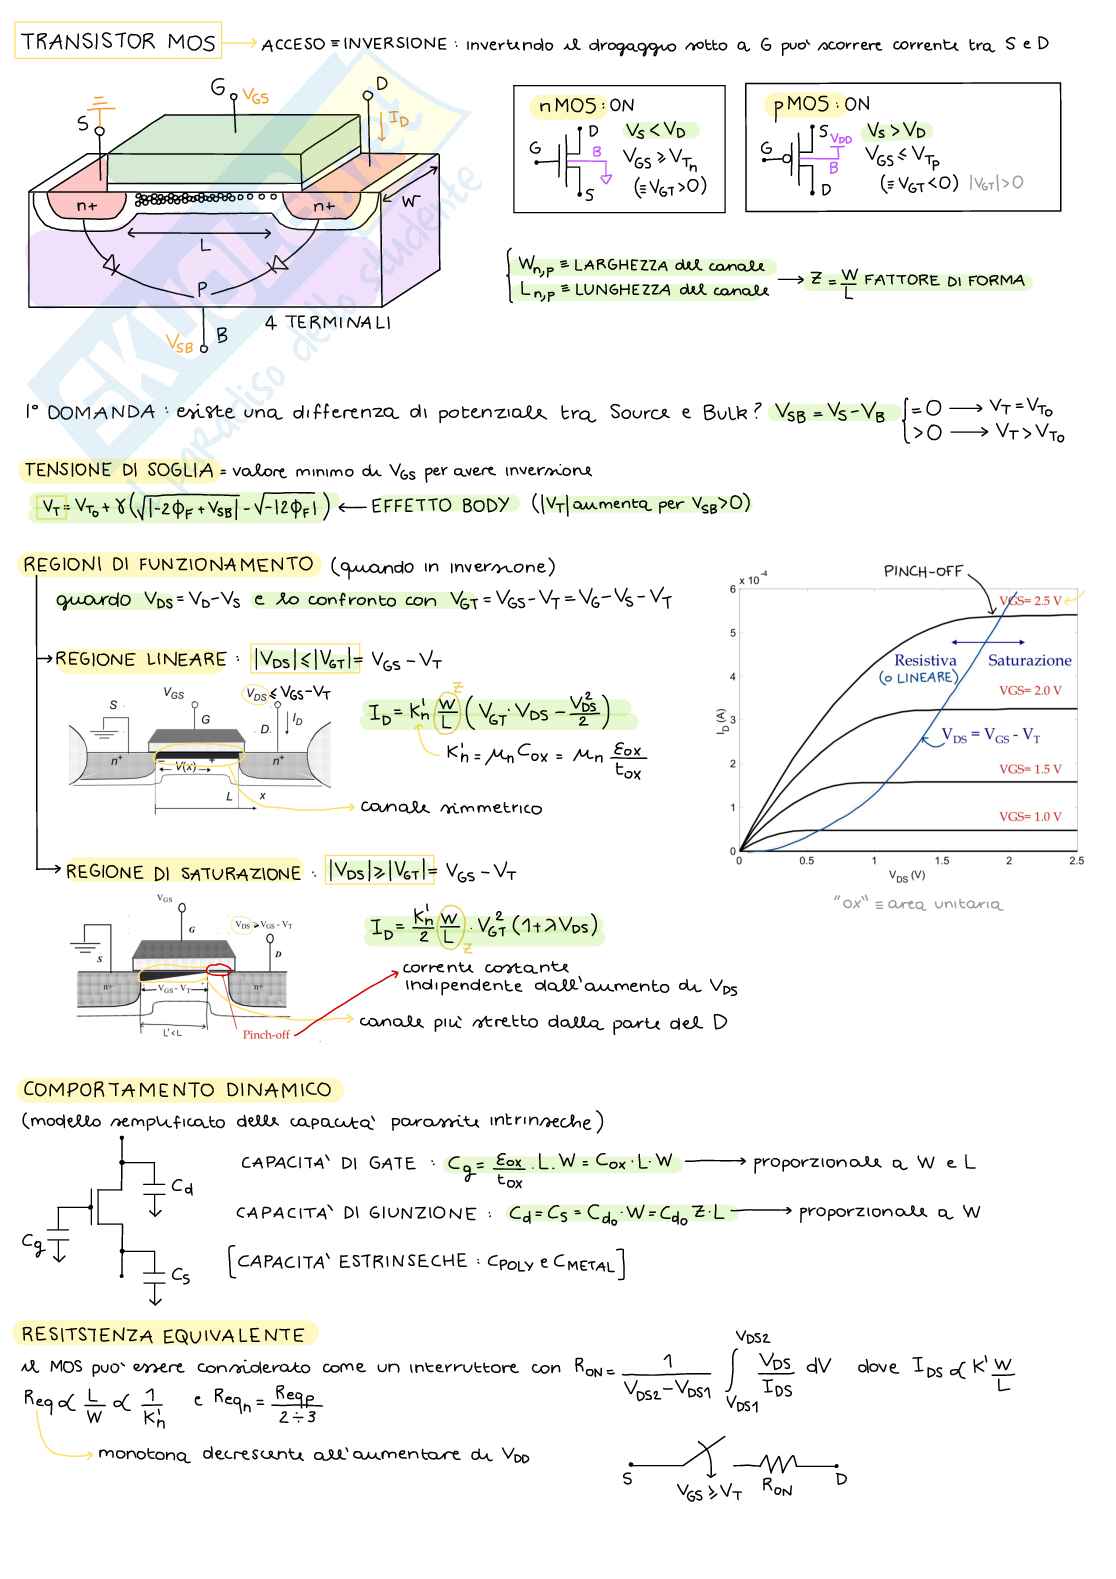 TRANSISTOR MOS → ACCESO ≡ INVERSIONE : invertendo il drogaggio sotto a G può scorrere corrente tra S e D
G V_GS
D
I_D
S
n+ n+
W
L
P
V_SB B
4 TERMINALI
SKUOLA.net
il paradiso dello studente
nMOS : ON
D
G
B
S
V_S < V_D
V_GS ≥ V_Tn
(≡ V_GT > 0)
pMOS : ON
S
V_DD
G
B
D
V_S > V_D
V_GS ≤ V_Tp
(≡ V_GT < 0) |V_GT| > 0
W_n,p ≡ LARGHEZZA del canale
L_n,p ≡ LUNGHEZZA del canale
→ Z = W/L FATTORE DI FORMA
1° DOMANDA : esiste una differenza di potenziale tra Source e Bulk? V_SB = V_S - V_B
= 0 → V_T = V_T0
> 0 → V_T > V_T0
TENSIONE DI SOGLIA = valore minimo di V_GS per avere inversione
V_T = V_T0 + γ(√|-2ϕ_F + V_SB| - √-|2ϕ_F|) ← EFFETTO BODY (|V_T| aumenta per V_SB > 0)
REGIONI DI FUNZIONAMENTO (quando in inversione)
guardo V_DS = V_D - V_S e lo confronto con V_GT = V_GS - V_T = V_G - V_S - V_T
→ REGIONE LINEARE : |V_DS| ≤ |V_GT| = V_GS - V_T
V_GS
V_DS ≤ V_GS - V_T
S
G
D
I_D
n+ n+
- V(x) +
L x
I_D = K'_n W/L (V_GT · V_DS - V_DS²/2)
Z
K'_n = μ_n C_ox = μ_n ε_ox/t_ox
canale simmetrico
PINCH-OFF
x 10⁻⁴
6
5
4
3
2
1
0
I_D (A)
VGS= 2.5 V
Resistiva Saturazione
(o LINEARE)
VGS= 2.0 V
V_DS = V_GS - V_T
VGS= 1.5 V
VGS= 1.0 V
0 0.5 1 1.5 2 2.5
V_DS (V)
"ox" ≡ area unitaria
→ REGIONE DI SATURAZIONE : |V_DS| ≥ |V_GT| = V_GS - V_T
V_GS
V_DS > V_GS - V_T
G
S
D
n+ n+
V_GS - V_T
L' < L
Pinch-off
I_D = K'_n/2 W/L · V_GT² (1 + λV_DS)
Z
corrente costante
indipendente dall'aumento di V_DS
canale più stretto dalla parte del D
COMPORTAMENTO DINAMICO
(modello semplificato delle capacità parassite intrinseche)
C_d
C_g
C_s
CAPACITÀ DI GATE : C_g = ε_ox/t_ox · L · W = C_ox · L · W → proporzionale a W e L
CAPACITÀ DI GIUNZIONE : C_d = C_s = C_d0 · W = C_d0 Z · L → proporzionale a W
[CAPACITÀ ESTRINSECHE : C_POLY e C_METAL]
RESITSTENZA EQUIVALENTE
il MOS può essere considerato come un interruttore con R_ON = 1/(V_DS2 - V_DS1) ∫_VDS1^VDS2 V_DS/I_DS dV dove I_DS ∝ K' W/L
Req ∝ L/W ∝ 1/K'_n e Req_n = Req_p/2÷3
monotona decrescente all'aumentare di V_DD
S
V_GS ≥ V_T
R_ON
D